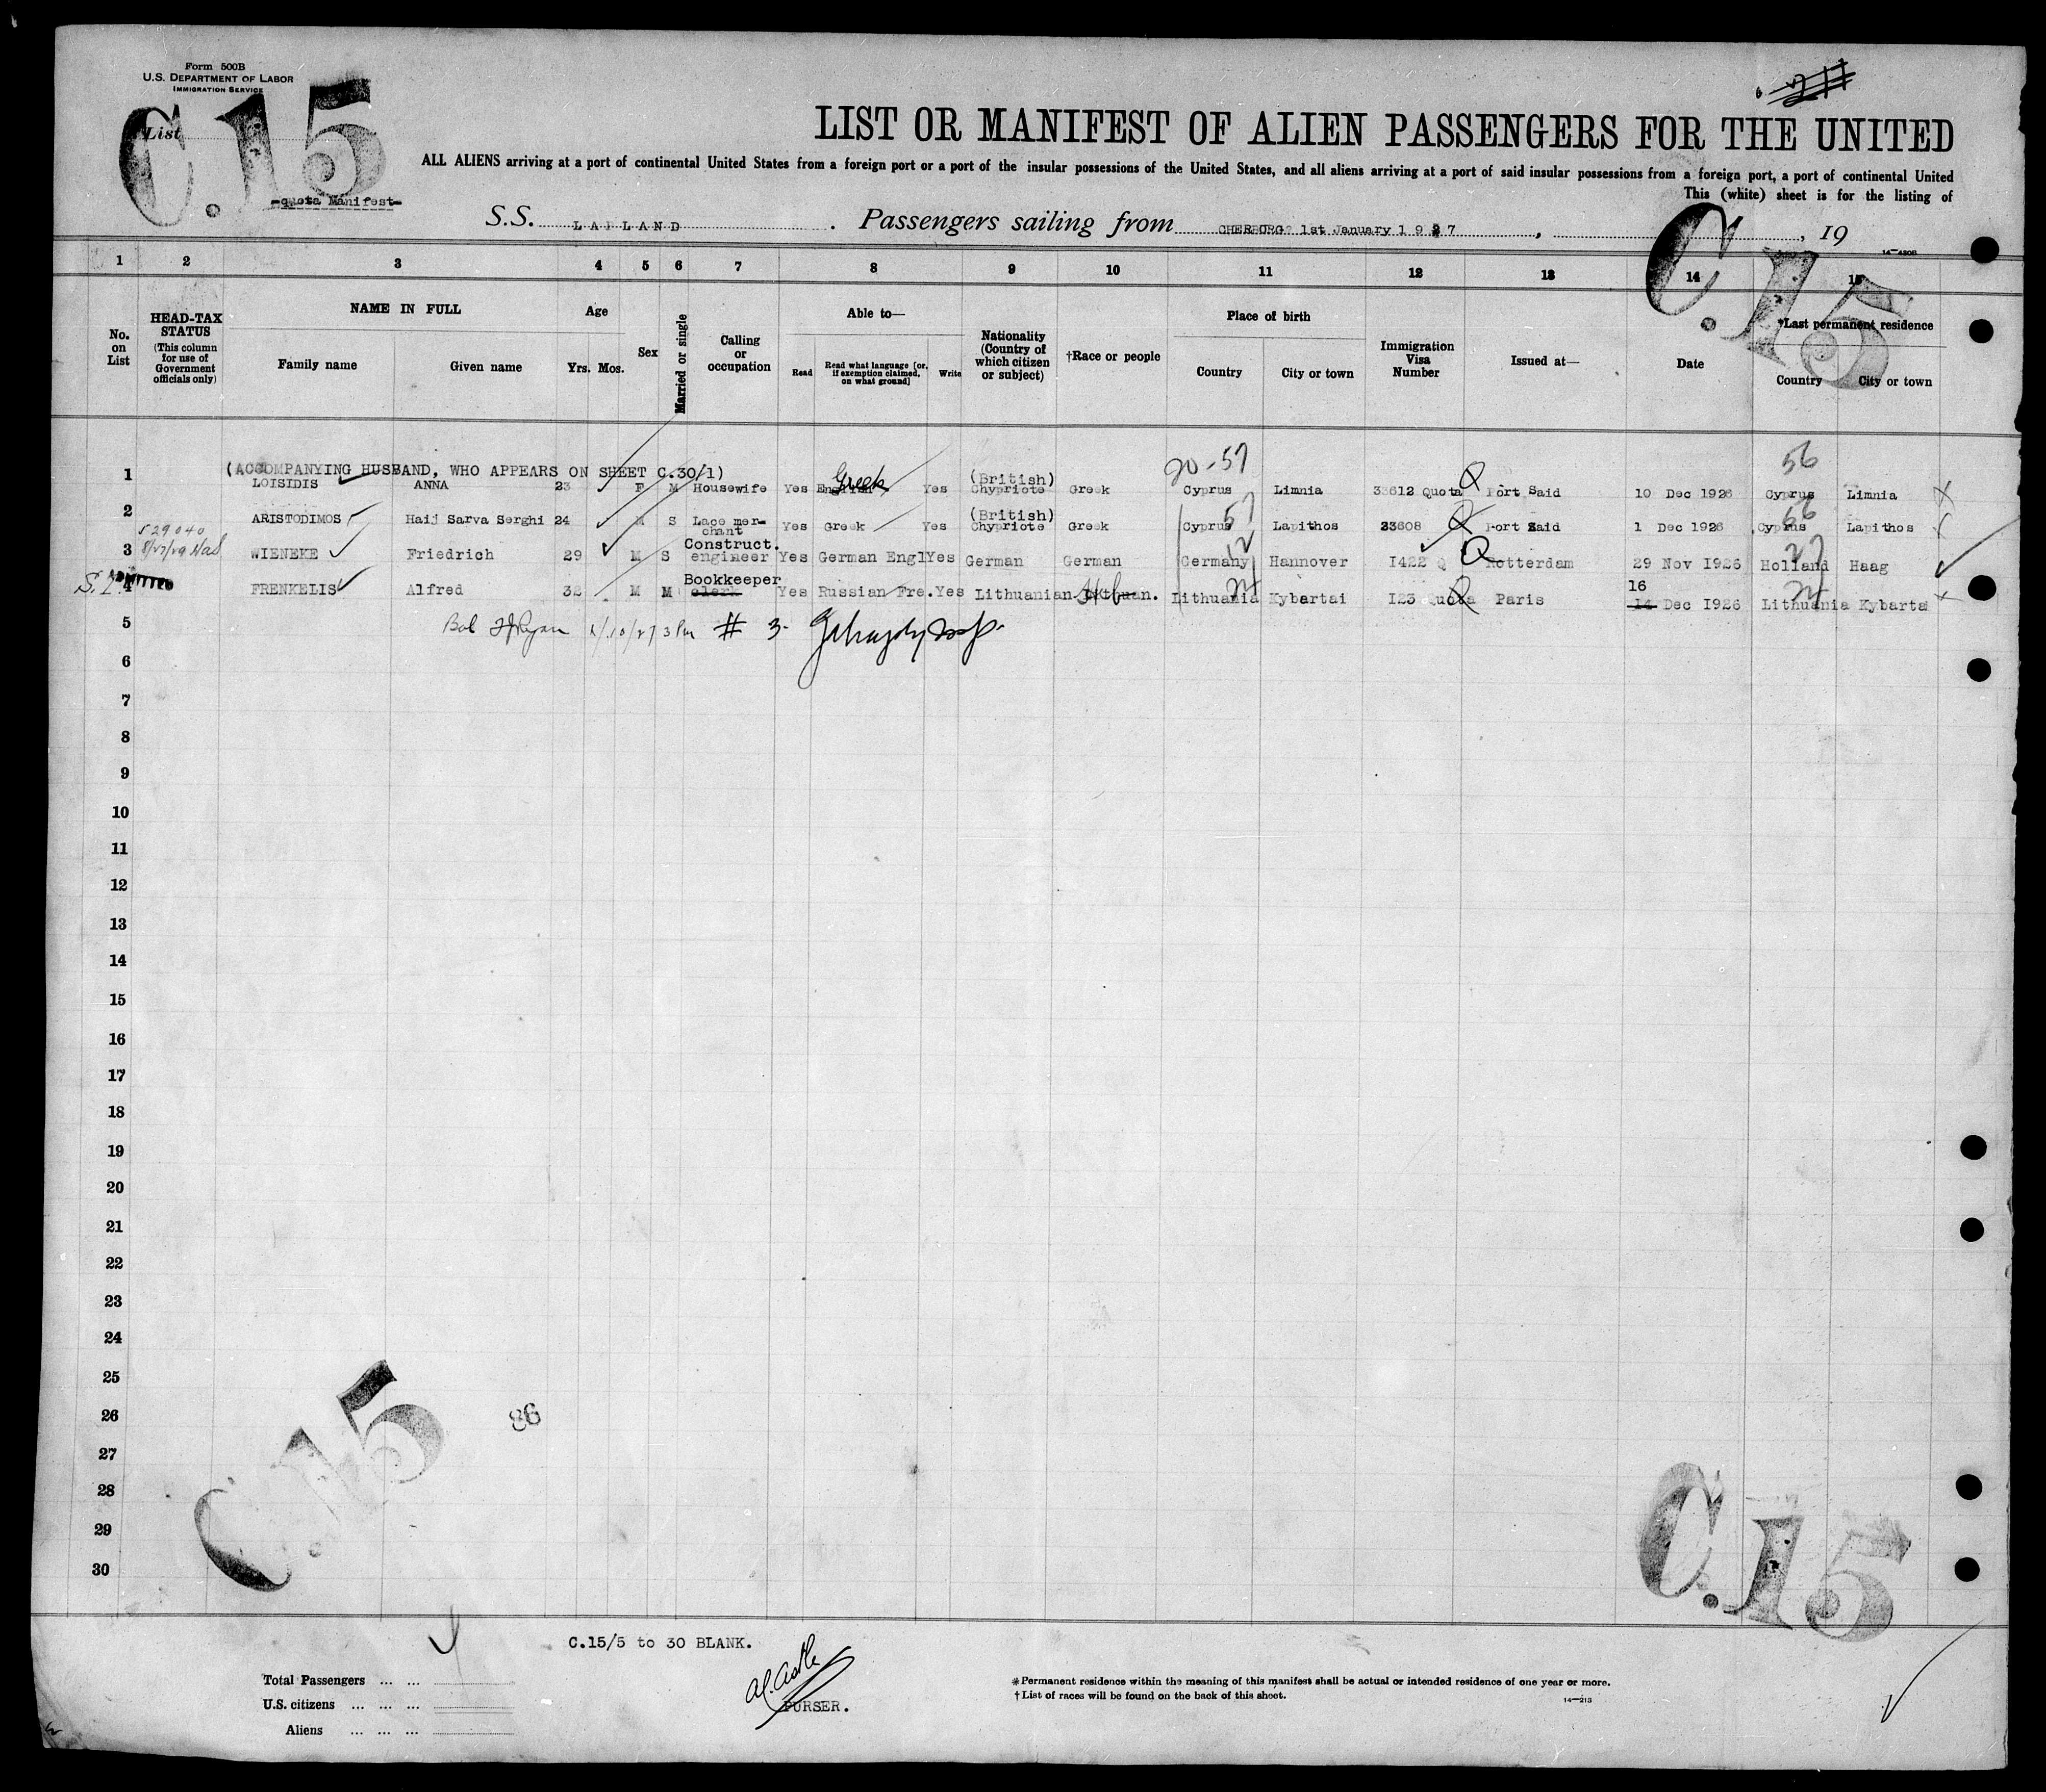 Form 500B
U.S. DEPARTMENT OF LABOR
IMMIGRATION SERVICE
List
C.15
-quota Manifest-
LIST OR MANIFEST OF ALIEN PASSENGERS FOR THE UNITED
ALL ALIENS arriving at a port of continental United States from a foreign port or a port of the insular possessions of the United States, and all aliens arriving at a port of said insular possessions from a foreign port, a port of continental United
This (white) sheet is for the listing of
S.S. LAPLAND. Passengers sailing from CHERBURG? 1st January 1927, , 19
14-4208
C.15
1 2 3 4 5 6 7 8 9 10 11 12 13 14 15
No. on List
HEAD-TAX STATUS (This column for use of Government officials only)
NAME IN FULL
Family name Given name
Age
Yrs. Mos.
Sex
Married or single
Calling or occupation
Able to—
Read Read what language [or, if exemption claimed, on what ground] Write
Nationality (Country of which citizen or subject)
†Race or people
Place of birth
Country City or town
Immigration Visa Number
Issued at—
Date
*Last permanent residence
Country City or town
20-57 56
(ACCOMPANYING HUSBAND, WHO APPEARS ON SHEET C.30/1)
1 LOISIDIS ANNA 23 F M Housewife Yes English Greek Yes (British) Chypriote Greek Cyprus Limnia 33612 Quota Q Port Said 10 Dec 1926 Cyprus Limnia X
2 ARISTODIMOS Haij Sarva Serghi 24 M S Lace merchant Yes Greek Yes (British) Chypriote Greek Cyprus 57 Lapithos 23608 Q Port Said 1 Dec 1926 Cyprus 56 Lapithos
529040
3 WIENEKE Friedrich 29 M S Construct. engineer Yes German Engl Yes German German Germany 12 Hannover I422 Q Q Rotterdam 29 Nov I926 Holland 27 Haag
ADMITTED
4 FRENKELIS Alfred 32 M M Bookkeeper clerk Yes Russian Fre. Yes Lithuanian Lithuan. Heb Lithuania 24 Kybartai I23 Quota Q Paris 16 14 Dec I926 Lithuania 24 Kybarta
5 # 3-
6
7
8
9
10
11
12
13
14
15
16
17
18
19
20
21
22
23
24
25
26
27
28
29
30
C.15
86
C.15
C.15/5 to 30 BLANK.
Total Passengers ... ...
U.S. citizens ... ... ...
Aliens ... ... ...
PURSER.
*Permanent residence within the meaning of this manifest shall be actual or intended residence of one year or more.
†List of races will be found on the back of this sheet.
14-213